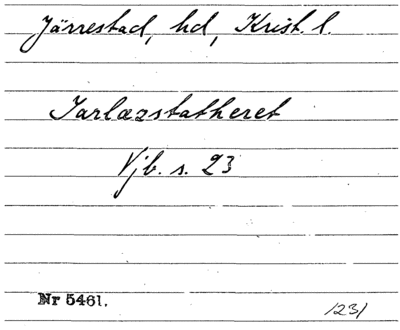 Järrestad, hd, Krist. l.
Jarlæzstatheret
Vjb. s. 23
Nr 5461.
1231